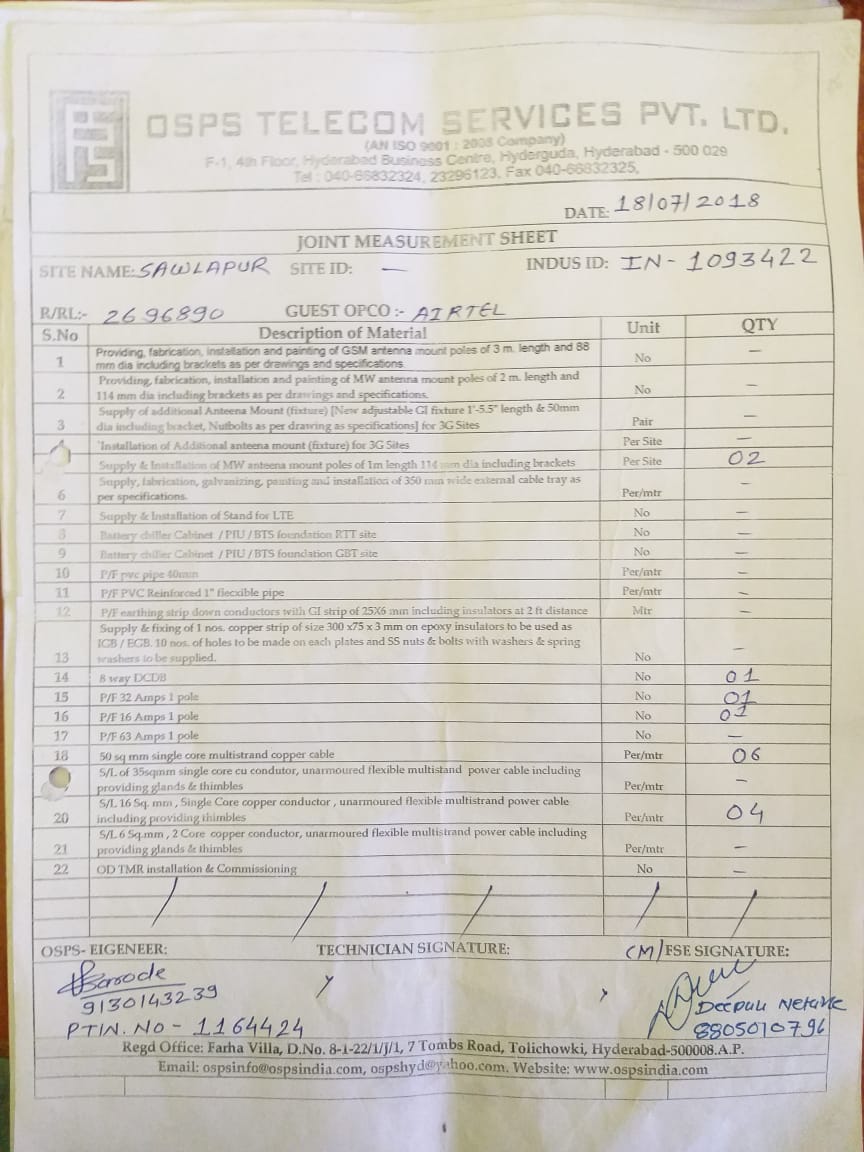 OSPS TELECOM SERVICES PVT. LTD.
(AN ISO 9001 : 2008 Company)
F-1, 4th Floor, Hyderabad Business Centre, Hyderguda, Hyderabad - 500 029
Tel : 040-66832324, 23296123, Fax 040-66832325,
DATE: 18/07/2018
JOINT MEASUREMENT SHEET
SITE NAME: SAWLAPUR SITE ID: — INDUS ID: IN-1093422
R/RL:- 2696890 GUEST OPCO :- AIRTEL
S.No Description of Material Unit QTY
1 Providing, fabrication, installation and painting of GSM antenna mount poles of 3 m. length and 88
mm dia including brackets as per drawings and specifications No —
2 Providing, fabrication, installation and painting of MW antenna mount poles of 2 m. length and
114 mm dia including brackets as per drawings and specifications. No —
3 Supply of additional Anteena Mount (fixture) [New adjustable GI fixture 1'-5.5" length & 50mm
dia including bracket, Nutbolts as per drawing as specifications] for 3G Sites Pair —
Installation of Additional anteena mount (fixture) for 3G Sites Per Site —
Supply & Installation of MW anteena mount poles of 1m length 114 mm dia including brackets Per Site 02
6 Supply, fabrication, galvanizing, painting and installation of 350 mm wide external cable tray as
per specifications. Per/mtr —
7 Supply & Installation of Stand for LTE No —
8 Battery chiller Cabinet / PIU / BTS foundation RTT site No —
9 Battery chiller Cabinet / PIU / BTS foundation GBT site No —
10 P/F pvc pipe 40mm Per/mtr —
11 P/F PVC Reinforced 1" flecxible pipe Per/mtr —
12 P/F earthing strip down conductors with GI strip of 25X6 mm including insulators at 2 ft distance Mtr —
13 Supply & fixing of 1 nos. copper strip of size 300 x75 x 3 mm on epoxy insulators to be used as
IGB / EGB. 10 nos. of holes to be made on each plates and SS nuts & bolts with washers & spring
washers to be supplied. No —
14 8 way DCDB No 01
15 P/F 32 Amps 1 pole No 01
16 P/F 16 Amps 1 pole No 01
17 P/F 63 Amps 1 pole No —
18 50 sq mm single core multistrand copper cable Per/mtr 06
S/L of 35sqmm single core cu condutor, unarmoured flexible multistand power cable including
providing glands & thimbles Per/mtr —
20 S/L 16 Sq. mm , Single Core copper conductor , unarmoured flexible multistrand power cable
including providing thimbles Per/mtr 04
21 S/L 6 Sq.mm , 2 Core copper conductor, unarmoured flexible multistrand power cable including
providing glands & thimbles Per/mtr —
22 OD TMR installation & Commissioning No —
OSPS- EIGENEER: TECHNICIAN SIGNATURE: (M)/FSE SIGNATURE:
9130143239
PTIN. NO - 1164424
8805010796
Regd Office: Farha Villa, D.No. 8-1-22/1/J/1, 7 Tombs Road, Tolichowki, Hyderabad-500008.A.P.
Email: ospsinfo@ospsindia.com, ospshyd@yahoo.com. Website: www.ospsindia.com